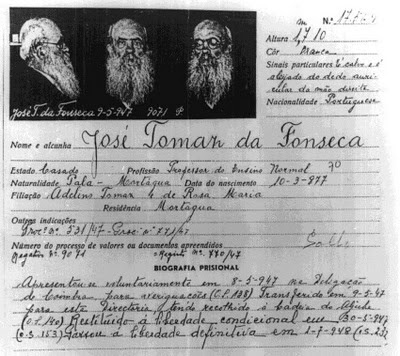 m Nº 17.
Altura 1,710
Côr Branca
Sinais particulares É calvo e é
aleijado do dedo auri-
cular da mão direita
Nacionalidade Portuguesa
José T. da Fonseca 9-5-947 9071 P
Nome e alcunha José Tomaz da Fonseca
Estado Casado Profissão Professor do Ensino Normal 70
Naturalidade Pala - Mortágua Data do nascimento 10-3-877
Filiação Adelino Tomaz e de Rosa Maria
Residência Mortágua
Outras indicações
Procº nº 531/47 - Procº nº 771/47
Número do processo de valores ou documentos apreendidos
Registo nº 9071 Registº nº 770/47
BIOGRAFIA PRISIONAL
Apresentou-se voluntariamente em 8-5-947 na Delegação
de Coimbra, para averiguações (O.S. 138) Transferido em 9-5-47
para esta Directoria, tendo recolhido à Cadeia do Aljube
(O.S. 140) Restituído à liberdade condicional em 30-5-947
(O.S. 153) Passou à liberdade definitiva em 1-7-948